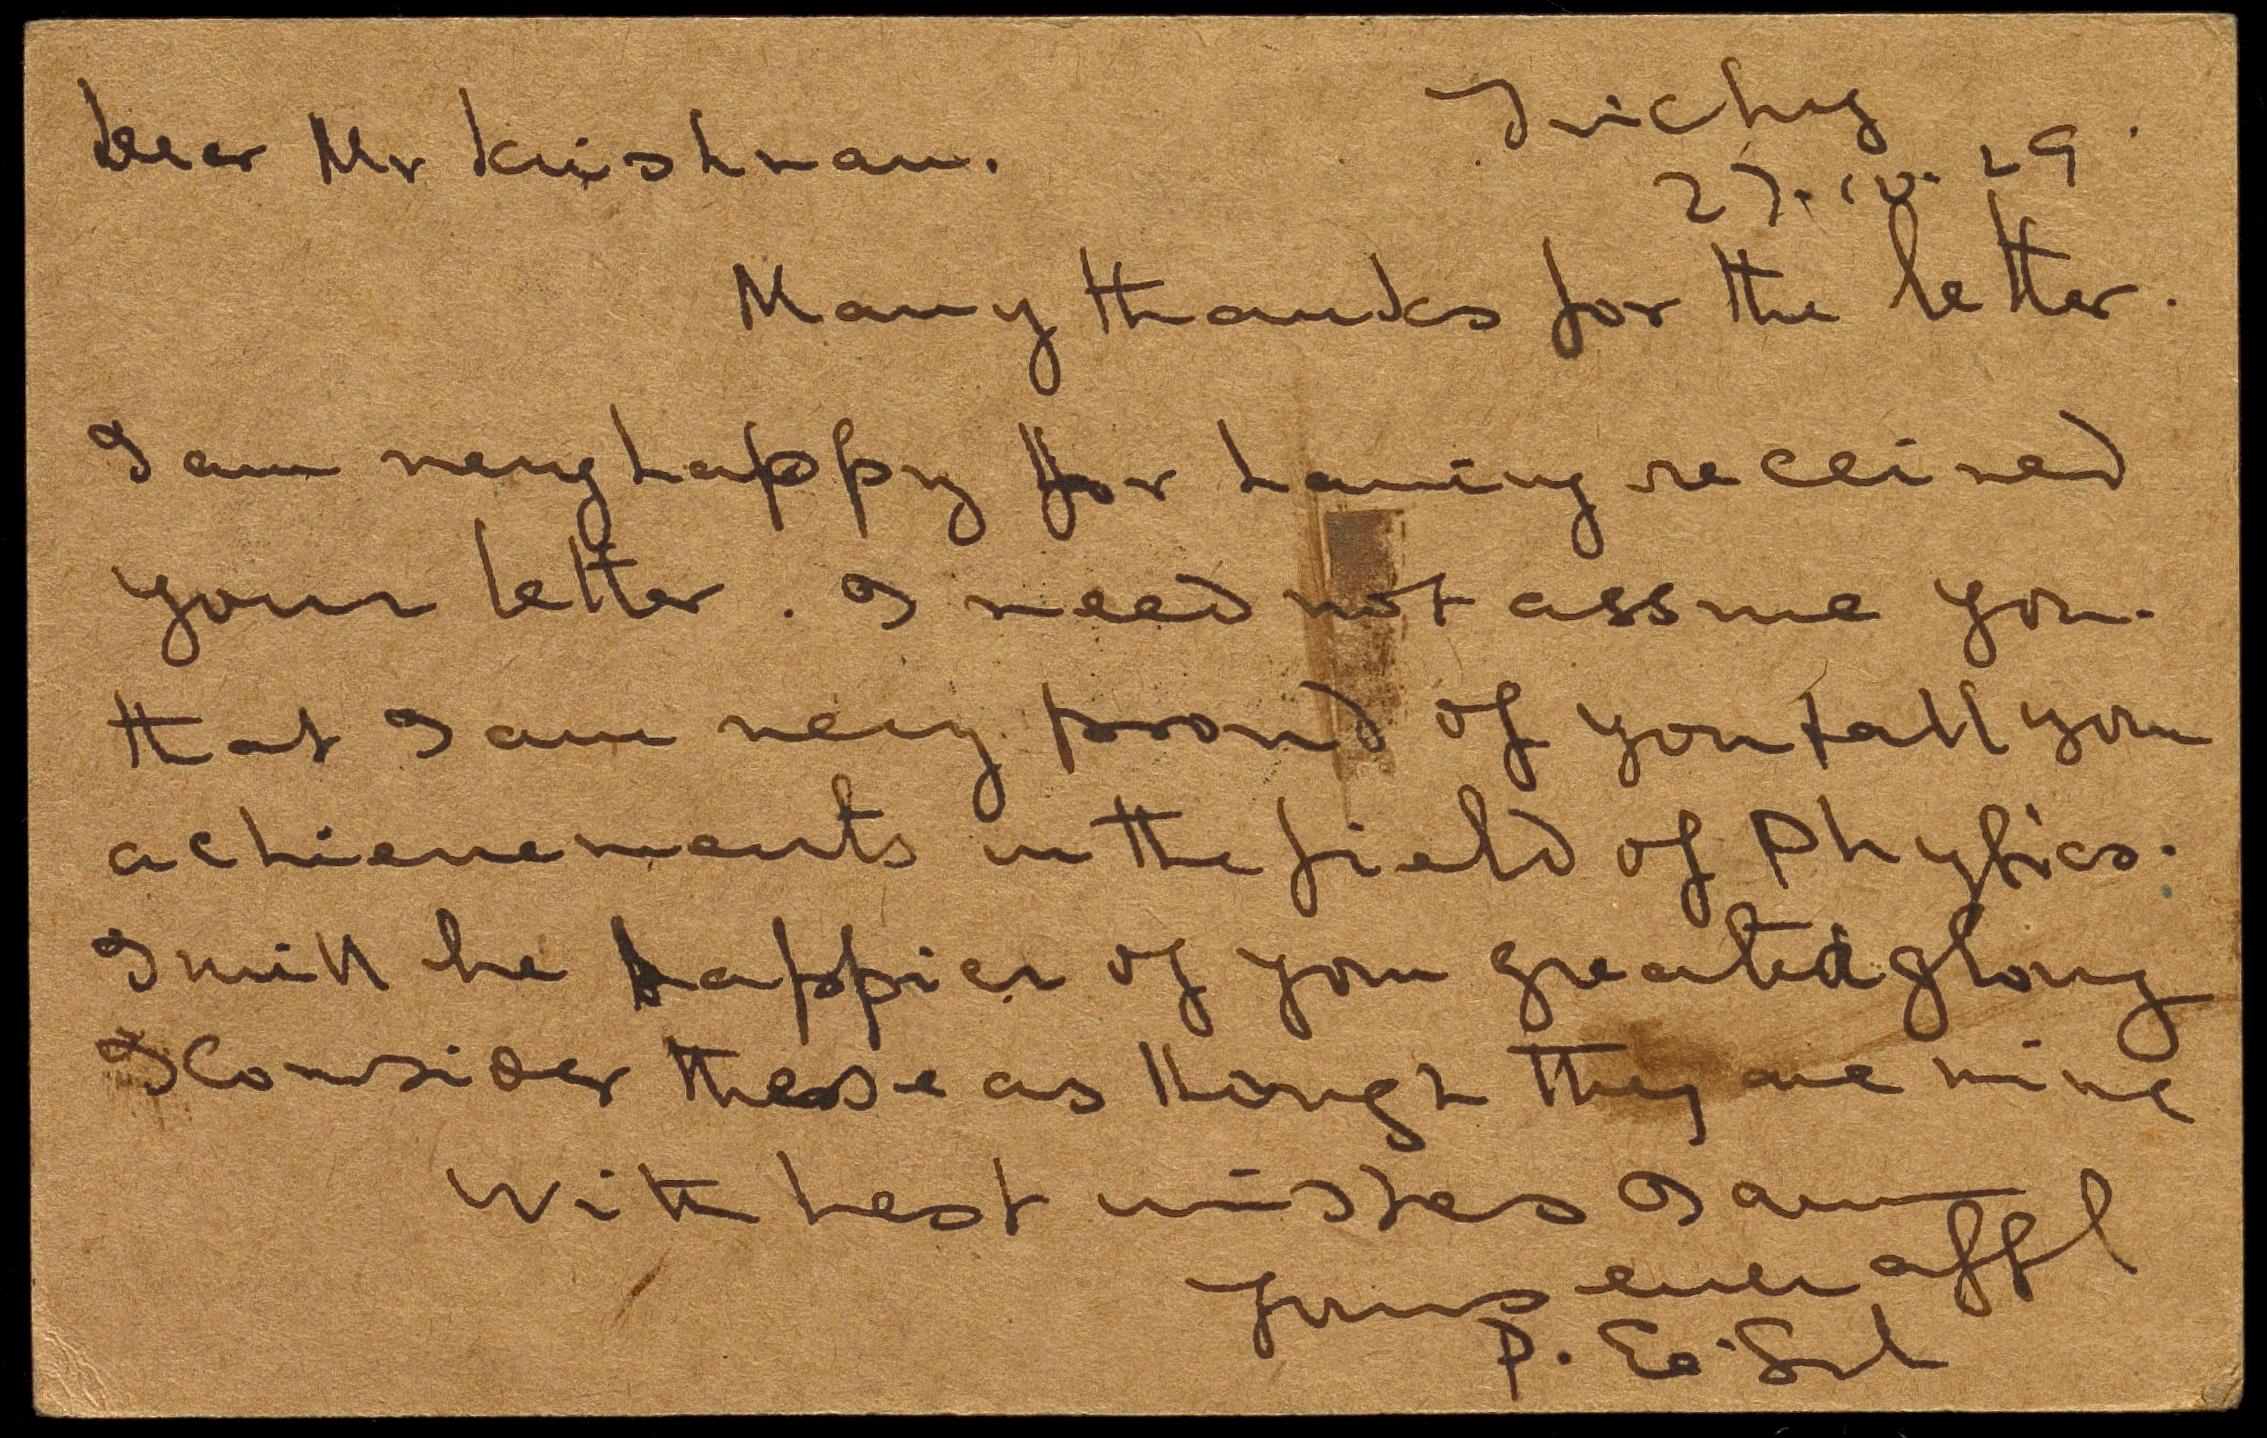 Trichy
27.10.29.
Dear Mr Krishnan.
Many thanks for the letter.
I am very happy for having received
your letter. I need not assure you.
that I am very proud of you & all your
achievements in the field of Physics.
I will be happier of your greated glory
I consider these as though they are mine
With best wishes I am
Yours ever affl
P. E.